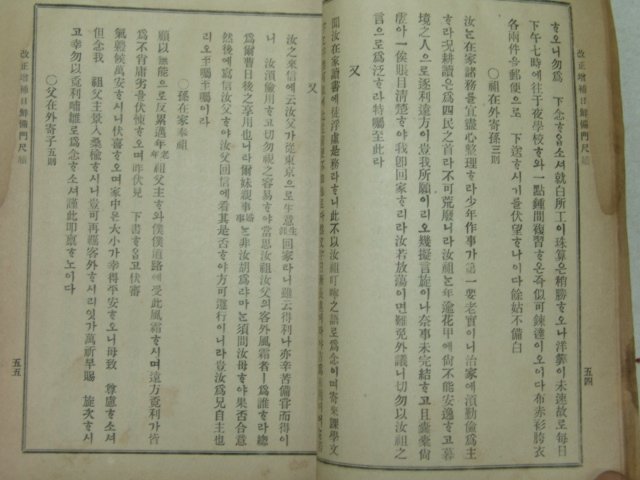 改正增補日鮮備門尺牘
五四
ᄒᆞ오니勿爲 下念ᄒᆞ옵쇼셔就白所工이珠算은稍勝ᄒᆞ오나洋筭이未速故로每日
下午七時에往于夜學校ᄒᆞ야一點鍾間複習ᄒᆞ온즉似可鍊達이오이다布赤衫胯衣
各兩件을郵便으로 下送ᄒᆞ시기를伏望ᄒᆞ나이다餘姑不備白
○祖在外寄孫三則
汝ᄂᆞᆫ在家諸務를宜盡心整理ᄒᆞ라少年作事가記一要老實이니治家에須勤儉爲主
ᄒᆞ라况耕讀은爲四民之首라不可荒廢니라汝祖ᄂᆞᆫ年逾花甲에尙不能安逸ᄒᆞ고暮
境之人으로逐利遠方이豈我所願이리오幾擬言旋이나奈事未完結ᄒᆞ고且囊橐尙
虛라一俟賬目清楚ᄒᆞ야我卽回家ᄒᆞ리라汝若放蕩이면難免外議니切勿以汝祖之
言으로爲泛ᄒᆞ라特囑至此라
又
聞汝在家讀書에徒浮虛是務라ᄒᆞ니此不以汝祖叮嚀之語로爲念이며寄來課學文
又
汝之來信에云汝父가從東京으로生意回家라니雖云得利나亦辛苦備嘗而得이
니 汝須儉用ᄒᆞ고切勿視之容易ᄒᆞ야當思汝祖汝父의客外風霜者ㅣ爲誰ᄒᆞ라總
爲爾曹日後之享用也니라爾妹親事ᄂᆞᆫ非汝胡爲라마ᄂᆞᆫ須問汝母ᄒᆞ야果否合意
然後에寫信汝父ᄒᆞ야汝父回信에看其是否ᄒᆞ야方可運行이니라豈汝爲兄自主也
리오囑々囑々이라
○孫在家奉祖
願以無能으로反累邁年老祖父主ᄒᆞ와僕僕道路에受此風霜ᄒᆞ시며遠方覓利가皆
爲不肖庸劣을伏悚ᄒᆞ오며昨伏見 下書ᄒᆞ옵고伏審
氣體候萬安ᄒᆞ시니伏喜ᄒᆞ오며家中은大小가幸得平安ᄒᆞ오니毋致 尊慮ᄒᆞ쇼셔
但念我 祖父主景入桑楡ᄒᆞ시니豈可再羈客外ᄒᆞ시리잇가萬祈早賜 旋次ᄒᆞ시
고幸勿以覓利囑雖로爲念ᄒᆞ쇼셔謹此叩稟ᄒᆞ노이다
○父在外寄子五則
改正增補日鮮備門尺牘
五五